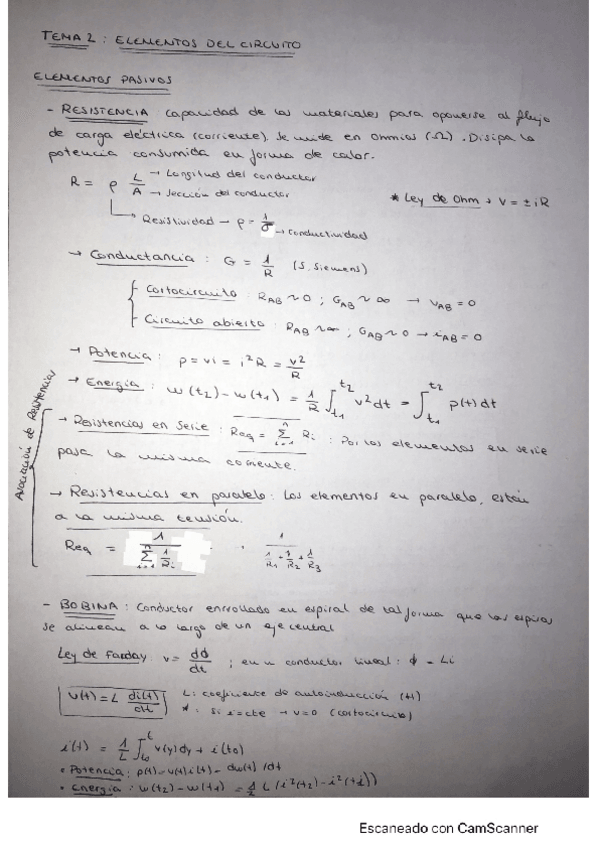 TEMA 2 : ELEMENTOS DEL CIRCUITO
ELEMENTOS PASIVOS
- RESISTENCIA : capacidad de los materiales para oponerse al flujo
de carga eléctrica (corriente). Se mide en Ohmios (Ω). Disipa la
potencia consumida en forma de calor.
R = ρ L/A → Longitud del conductor
→ Sección del conductor
* Ley de Ohm → V = ± iR
Resistividad → ρ = 1/σ → conductividad
→ Conductancia : G = 1/R (S, Siemens)
Cortocircuito : R_AB ~ 0 ; G_AB ~ ∞ → V_AB = 0
Circuito abierto : R_AB ~ ∞ ; G_AB ~ 0 → i_AB = 0
→ Potencia : p = vi = i²R = v²/R
→ Energía : w(t2) - w(t1) = 1/R ∫t1^t2 v² dt = ∫t1^t2 p(t) dt
Asociación de Resistencias
→ Resistencias en Serie : Req = Σ i=1 n Ri : Por los elementos en serie
pasa la misma corriente.
→ Resistencias en paralelo : Los elementos en paralelo, están
a la misma tensión.
Req = 1 / Σ i=1 n 1/Ri 1 / 1/R1 + 1/R2 + 1/R3
- BOBINA : Conductor enrollado en espiral de tal forma que las espiras
se alinean a lo largo de un eje central
Ley de Farday v = dΦ/dt ; en un conductor lineal : Φ = Li
v(t) = L di(t)/dt
L : coeficiente de autoinducción (H)
* : Si i = cte → v = 0 (cortocircuito)
i(t) = 1/L ∫t0^t v(y) dy + i(t0)
• Potencia : p(t) = v(t) i(t) = dw(t)/dt
• Energía : w(t2) - w(t1) = 1/2 L (i²(t2) - i²(t1))
Escaneado con CamScanner